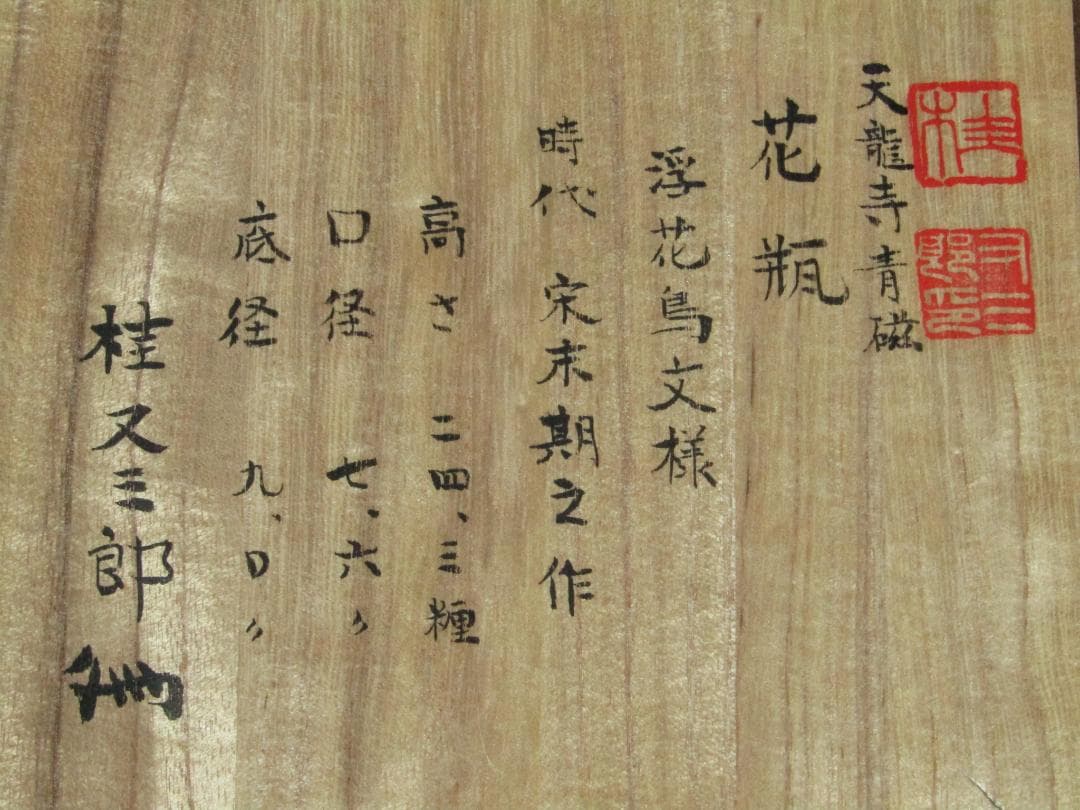 桂
又三郎印
天龍寺青磁
花瓶
浮花鳥文様
時代 宋末期之作
高さ 二四、三糎
口径 七、六〃
底径 九、〇〃
桂又三郎